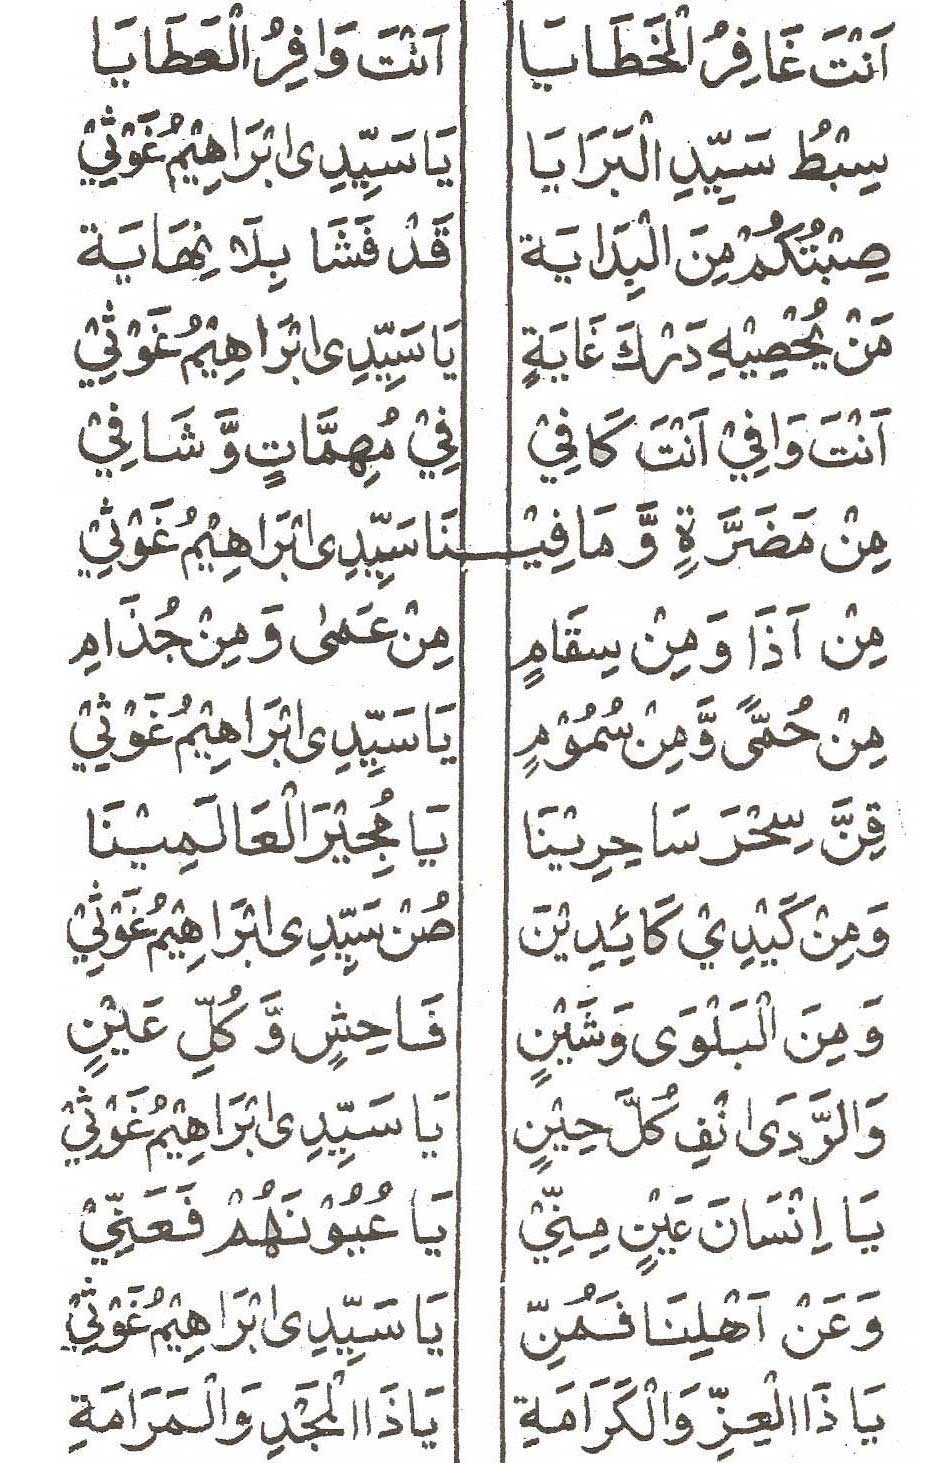 اَنْتَ غَافِرُ الْخَطَايَا اَنْتَ وَافِرُ الْعَطَايَا
سِبْطُ سَيِّدِ الْبَرَايَا يَا سَيِّدِى ابْرَاهِيْمُ غَوْثِيْ
صِيْتُكُمْ مِنَ الْبِدَايَة قَدْ فَشَا بِلَا نِهَايَة
مَنْ يُحْصِيْهِ دَرْكَ غَايَةٍ يَا سَيِّدِى ابْرَاهِيْمُ غَوْثِيْ
اَنْتَ وَافِيْ اَنْتَ كَافِيْ فِيْ مُهِمَّاتٍ وَّ شَافِيْ
مِنْ مَضَرَّةٍ وَّ مَا فِيْنَا سَيِّدِى ابْرَاهِيْمُ غَوْثِيْ
مِنْ اَذَا وَ مِنْ سِقَامٍ مِنْ عَمٰى وَ مِنْ جُذَامِ
مِنْ حُمًّى وَّ مِنْ سُمُوْمٍ يَا سَيِّدِى ابْرَاهِيْمُ غَوْثِيْ
قِنَّ سِحْرَ سَاحِرِيْنَا يَا مُجِيْرَ الْعَالَمِيْنَا
وَ مِنْ كَيْدِيْ كَائِدِيْنَ صُنْ سَيِّدِى ابْرَاهِيْمُ غَوْثِيْ
وَ مِنَ الْبَلْوَى وَشَيْنٍ فَاحِشٍ وَّ كُلِّ عَيْنٍ
وَالرَّدَى انْفِ كُلَّ حِيْنٍ يَا سَيِّدِى ابْرَاهِيْمُ غَوْثِيْ
يَا اِنْسَانَ عَيْنٍ مِنِّيْ يَا عُيُوْنَهُمْ فَعَنِّيْ
وَ عَنْ اَهْلِنَا فَمُنِّ يَا سَيِّدِى ابْرَاهِيْمُ غَوْثِيْ
يَا ذَا الْعِزِّ وَالْكَرَامَةِ يَا ذَا الْمَجْدِ وَالْمَرَامَةِ